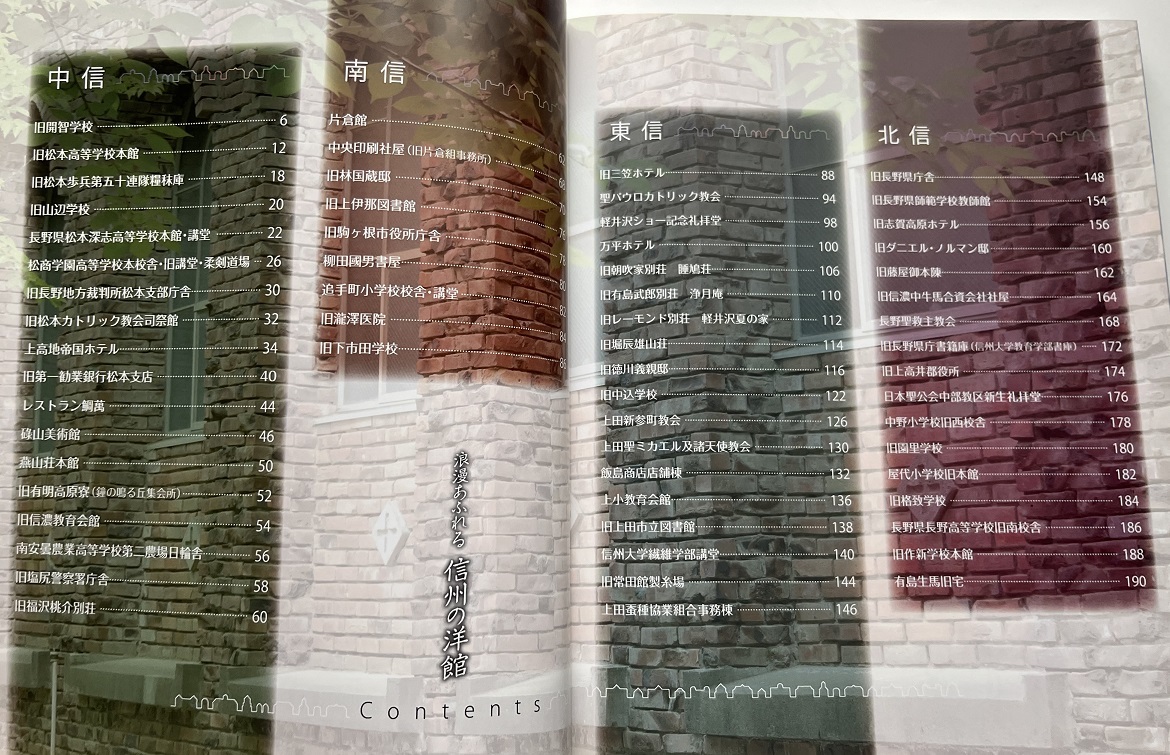 中信
旧開智学校 6
旧松本高等学校本館 12
旧松本歩兵第五十連隊糧秣庫 18
旧山辺学校 20
長野県松本深志高等学校本館・講堂 22
松商学園高等学校本校舎・旧講堂・柔剣道場 26
旧長野地方裁判所松本支部庁舎 30
旧松本カトリック教会司祭館 32
上高地帝国ホテル 34
旧第一勧業銀行松本支店 40
レストラン鯛萬 44
碌山美術館 46
燕山荘本館 50
旧有明高原寮(鐘の鳴る丘集会所) 52
旧信濃教育会館 54
南安曇農業高等学校第二農場日輪舎 56
旧塩尻警察署庁舎 58
旧福沢桃介別荘 60
南信
片倉館 62
中央印刷社屋(旧片倉組事務所) 68
旧林国蔵邸 70
旧上伊那図書館 76
旧駒ヶ根市役所庁舎 78
柳田國男書屋 80
追手町小学校校舎・講堂 82
旧瀧澤医院 84
旧下市田学校 86
浪漫あふれる 信州の洋館
東信
旧三笠ホテル 88
聖パウロカトリック教会 94
軽井沢ショー記念礼拝堂 98
万平ホテル 100
旧朝吹家別荘 睡鳩荘 106
旧有島武郎別荘 浄月庵 110
旧レーモンド別荘 軽井沢夏の家 112
旧堀辰雄山荘 114
旧徳川義親邸 116
旧中込学校 122
上田新参町教会 126
上田聖ミカエル及諸天使教会 130
飯島商店店舗棟 132
上小教育会館 136
旧上田市立図書館 138
信州大学繊維学部講堂 140
旧常田館製糸場 144
上田蚕種協業組合事務棟 146
北信
旧長野県庁舎 148
旧長野県師範学校教師館 154
旧志賀高原ホテル 156
旧ダニエル・ノルマン邸 160
旧藤屋御本陳 162
旧信濃中牛馬合資会社社屋 164
長野聖救主教会 168
旧長野県庁書籍庫(信州大学教育学部書庫) 172
旧上高井郡役所 174
日本聖公会中部教区新生礼拝堂 176
中野小学校旧西校舎 178
旧園里学校 180
屋代小学校旧本館 182
旧格致学校 184
長野県長野高等学校旧南校舎 186
旧作新学校本館 188
有島生馬旧宅 190
Contents